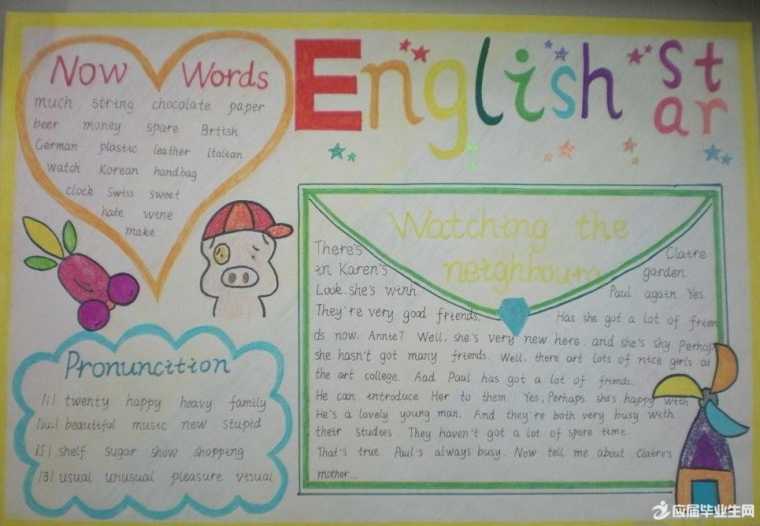 English St
ar
Now Words
much string chocolate paper
beer money spare British
German plastic leather italian
watch Korean handbag
clock Swiss sweet
hate wine
make
Pronuncition
/i/ twenty happy heavy family
/ju:/ beautiful music new stupid
/ʃ/ shelf sugar show shopping
/ʒ/ usual unusual pleasure visual
Watching the
neighbours
There's Claire
in Karen's garden
Look she's with Paul again Yes.
They're very good friends. Has she got a lot of frien
ds now. Annie? Well, she's very new here, and she's shy. Perhaps
she hasn't got many friends. Well, there art lots of nice girls at
the art college. Aad Paul has got a lot of friends.
He can introduce Her to them. Yes, Perhaps, she's happy with
He's a lovely young man. And they're both very busy with
their studees. They haven't got a lot of spare time.
That's true. Paul's always busy. Now tell me about Claire's
mother...
应届毕业生网